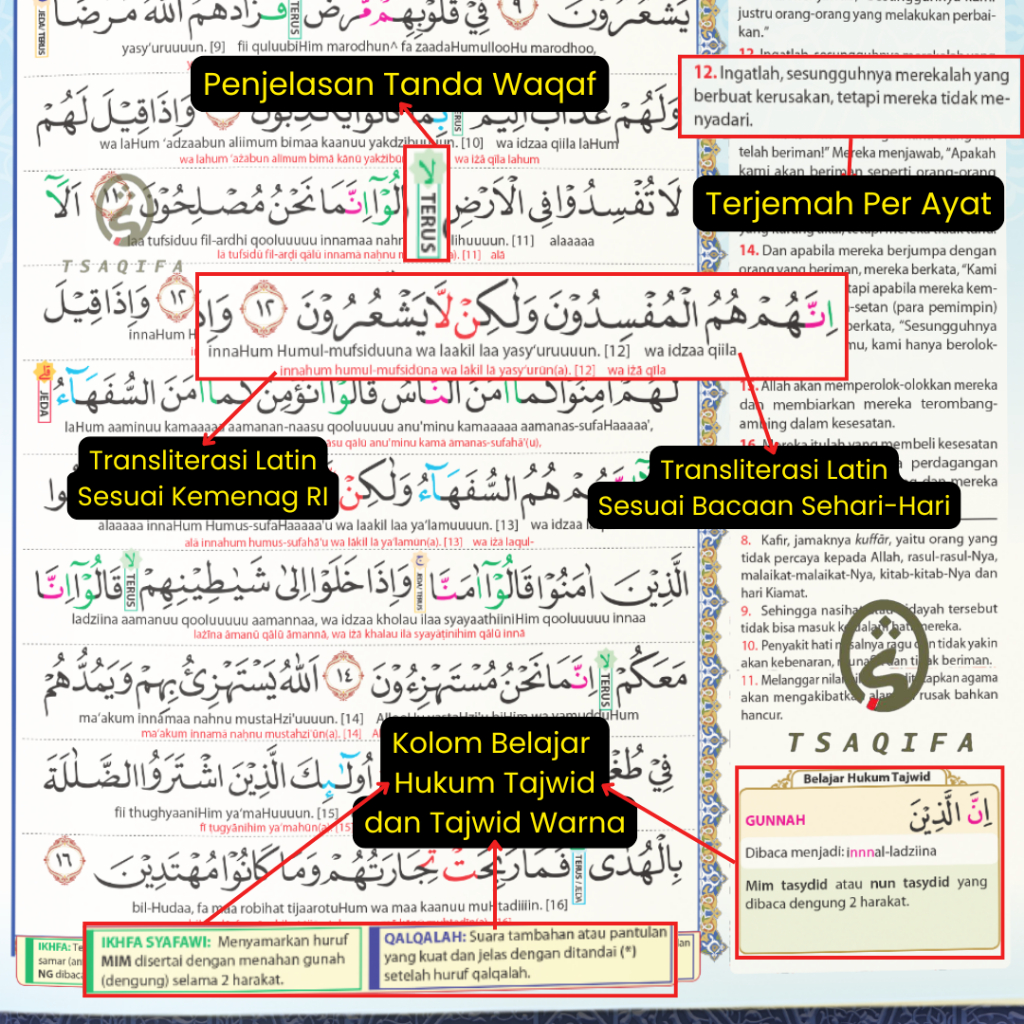 يَشْعُرُوْنَ ٩ فِيْ قُلُوْبِهِمْ مَّرَضٌ فَزَادَهُمُ اللّٰهُ مَرَضًا
JEDA / TERUS
TERUS
yasy'uruuuun. [9] fii quluubiHim marodhun^ fa zaadaHumullooHu marodhoo,
Penjelasan Tanda Waqaf
وَلَهُمْ عَذَابٌ اَلِيْمٌ وَاِذَا قِيْلَ لَهُمْ
TERUS
wa laHum 'adzaabun aliimum bimaa kaanuu yakdzibu [10] wa idzaa qiila laHum
wa lahum 'ażābun alīmum bimā kānū yakżibū wa iżā qīla lahum
لَا تُفْسِدُوْا فِى الْاَرْضِ لُوْٓا اِنَّمَا نَحْنُ مُصْلِحُوْنَ ١١ اَلَآ
لا TERUS
laa tufsiduu fil-ardhi qooluuuuu innamaa nah lihuuuun. [11] alaaaaa
lā tufsidū fil-arḍi qālū innamā naḥnu [11] alā
TSAQIFA
وَاِذَا قِيْلَ ١٢
اِنَّهُمْ هُمُ الْمُفْسِدُوْنَ وَلٰكِنْ لَّا يَشْعُرُوْنَ ١٢ وَاِذَ
innaHum H
innaHum Humul-mufsiduuna wa laakil laa yasy'uruuuun. [12] wa idzaa qiila
innahum humul-mufsidūna wa lākil lā yasy'urūn(a). [12] wa iżā qīla
لَهُمْ اٰمِنُوْا كَمَآ اٰمَنَ النَّاسُ قَالُوْٓا اَنُؤْمِنُ كَمَآ اٰمَنَ السُّفَهَاۤءُ
JEDA
laHum aaminuu kamaaaaa aamanan-naasu qooluuuuu anu'minu kamaaaaa aamanas-sufaHaaaaa',
āsu qālū anu'minu kamā āmanas-sufahā'(u).
Transliterasi Latin
Sesuai Kemenag RI
Transliterasi Latin
Sesuai Bacaan Sehari-Hari
هُمُ السُّفَهَاۤءُ وَلٰكِنْ
alaaaaa innaHum Humus-sufaHaaaaa'u wa laakil laa ya'lamuuuun. [13] wa idzaa l
alā innahum humus-sufahā'u wa lākil lā ya'lamūn(a). [13] wa iżā laqul-
الَّذِيْنَ اٰمَنُوْا قَالُوْٓا اٰمَنَّا وَاِذَا خَلَوْا اِلٰى شَيٰطِيْنِهِمْ قَالُوْٓا اِنَّا
JEDA / TERUS
لا TERUS
ladziina aamanuu qooluuuuu aamannaa, wa idzaa kholau ilaa syayaathiiniHim qooluuuuu innaa
lażīna āmanū qālū āmannā, wa iżā khalau ilā syayāṭīnihim qālū innā
مَعَكُمْ اِنَّمَا نَحْنُ مُسْتَهْزِءُوْنَ ١٤ اَللّٰهُ يَسْتَهْزِئُ بِهِمْ وَيَمُدُّهُمْ
لا TERUS
ma'akum innamaa nahnu mustaHzi'uuuun. [14] AllooHu yastaHzi'u biHim wa yamudduHum
ma'akum innamā naḥnu mustahzi'ūn(a). [14]
Kolom Belajar
Hukum Tajwid
dan Tajwid Warna
فِيْ اُولٰۤىِٕكَ الَّذِيْنَ اشْتَرَوُا الضَّلٰلَةَ
fii thughyaaniHim ya'maHuuuun. [15]
fī ṭugyānihim ya'mahūn(a). [15
بِالْهُدٰى فَمَا رَبِحَتْ تِّجَارَتُهُمْ وَمَا كَانُوْا مُهْتَدِيْنَ ١٦
TERUS / JEDA
bil-Hudaa, fa maa robihat tijaarotuHum wa maa kaanuu muHtadiiiin. [16]
IKHFA: Te
samar (an
NG dibaca
IKHFA SYAFAWI: Menyamarkan huruf
MIM disertai dengan menahan gunah
(dengung) selama 2 harakat.
QALQALAH: Suara tambahan atau pantulan
yang kuat dan jelas dengan ditandai (*)
setelah huruf qalqalah.
justru orang-orang yang melakukan perbai-
kan."
12. Ingatlah, sesungguhnya merekalah yang
berbuat kerusakan, tetapi mereka tidak me-
nyadari.
telah beriman!" Mereka menjawab, "Apakah
kami akan beriman seperti orang-orang
Terjemah Per Ayat
14. Dan apabila mereka berjumpa dengan
orang yang beriman, mereka berkata, "Kami
tapi apabila mereka kem-
-setan (para pemimpin)
berkata, "Sesungguhnya
mu, kami hanya berolok-
15. Allah akan memperolok-olokkan mereka
dan membiarkan mereka terombang-
ambing dalam kesesatan.
16. Mereka itulah yang membeli kesesatan
perdagangan
dan mereka
8. Kafir, jamaknya kuffâr, yaitu orang yang
tidak percaya kepada Allah, rasul-rasul-Nya,
malaikat-malaikat-Nya, kitab-kitab-Nya dan
hari Kiamat.
9. Sehingga nasihat atau hidayah tersebut
tidak bisa masuk ke dalam hati mereka.
10. Penyakit hati misalnya ragu dan tidak yakin
akan kebenaran, munafik dan tidak beriman.
11. Melanggar nilai yang ditetapkan agama
akan mengakibatkan alam rusak bahkan
hancur.
TSAQIFA
Belajar Hukum Tajwid
GUNNAH اِنَّ الَّذِيْنَ
Dibaca menjadi: innnal-ladziina
Mim tasydid atau nun tasydid yang
dibaca dengung 2 harakat.